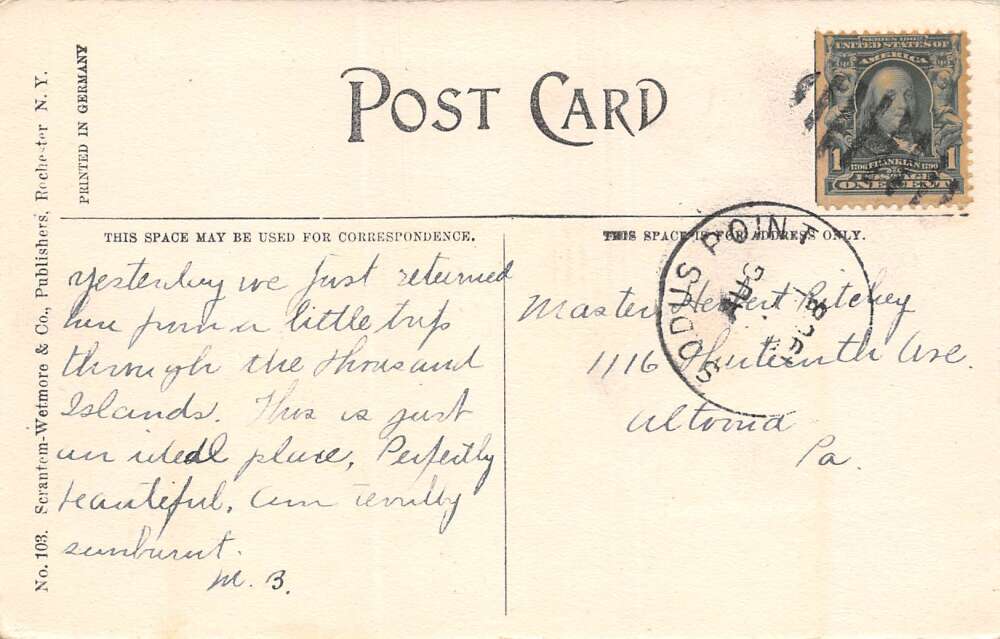 POST CARD
PRINTED IN GERMANY
No. 103. Scrantom-Wetmore & Co., Publishers, Rochester N. Y.
SERIES 1902
UNITED STATES OF
AMERICA
1 1706 FRANKLIN 1790 1
POSTAGE
ONE CENT
THIS SPACE MAY BE USED FOR CORRESPONDENCE.
THIS SPACE IS FOR ADDRESS ONLY.
SODUS POINT
AUG
1908
yesterday we just returned
here from a little trip
through the Thousand
Islands. This is just
an ideal place, Perfectly
beautiful, am terribly
sunburnt.
M. B.
Master Herbert Ritchey
1116 Thirteenth Ave.
Altoona
Pa.